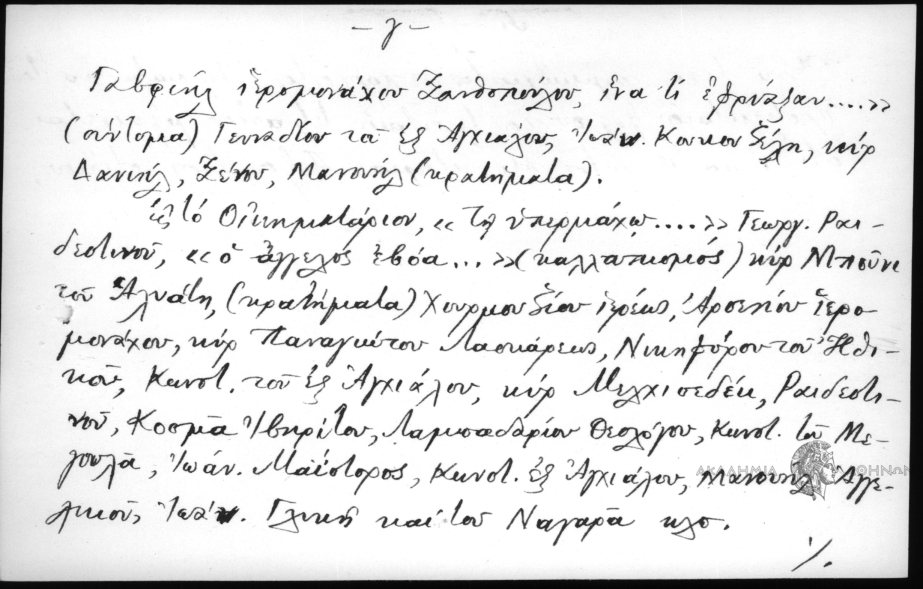 – γ –
Γαβριὴλ ἱερομονάχου Ξανθοπούλου, ἵνα τί ἐφρύαξαν....»
(σύντομα) Γενναδίου τοῦ ἐξ Ἀγχιάλου, Ἰωάν. Κουκουζέλη, κὺρ
Δανιήλ, Ξένου, Μανουὴλ (κρατήματα).
εἰς τό Οἰκηματάριον, «Τῇ ὑπερμάχῳ....» Γεωργ. Ραι-
δεστινοῦ, «ὁ ἄγγελός ἐβόα...» (καλλωπισμός) κὺρ Μπούνε
τοῦ Ἀλυάτη, (κρατήματα) Χουρμουζίου ἱερέως, Ἀρσενίου ἱερο
μονάχου, κὺρ Παναγιώτου Λασκάρεως, Νικηφόρου τοῦ Ἠθι-
κοῦ, Κωνστ. τοῦ ἐξ Ἀγχιάλου, κὺρ Μελχισεδέκ, Ραιδεστι-
νοῦ, Κοσμᾶ Ἰβηρίτου, Λαμπαδαρίου Θεολόγου, Κωνστ. τοῦ Με-
γουλᾶ, Ἰωάν. Μαΐστορος, Κωνστ. ἐξ Ἀγχιάλου, Μανουὴλ Ἀγγε-
λικοῦ, Ἰωάν. Γλυκῆ καί του Ναγαρᾶ κλπ.
./.
ΑΚΑΔΗΜΙΑ ΑΘΗΝΩΝ